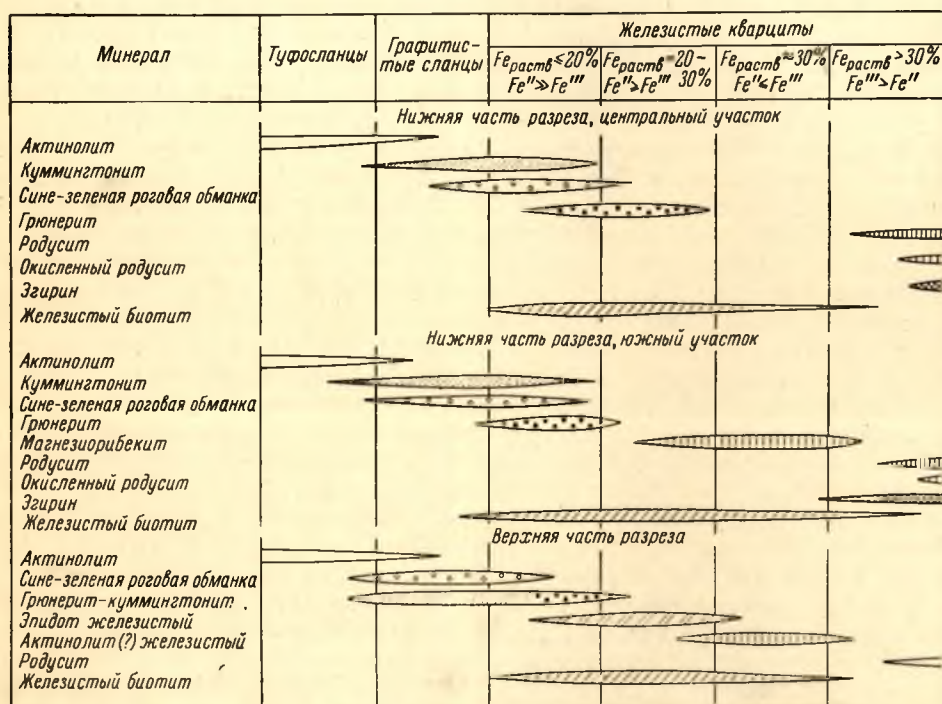 Минерал
Туфосланцы
Графитис-
тые сланцы
Железистые кварциты
Feраств≤20%
Fe″≫Fe‴
Feраств=20–
Fe″>Fe‴ 30%
Feраств≈30%
Fe″≤Fe‴
Feраств>30%
Fe‴>Fe″
Нижняя часть разреза, центральный участок
Актинолит
Куммингтонит
Сине-зеленая роговая обманка
Грюнерит
Родусит
Окисленный родусит
Эгирин
Железистый биотит
Нижняя часть разреза, южный участок
Актинолит
Куммингтонит
Сине-зеленая роговая обманка
Грюнерит
Магнезиорибекит
Родусит
Окисленный родусит
Эгирин
Железистый биотит
Верхняя часть разреза
Актинолит
Сине-зеленая роговая обманка
Грюнерит-куммингтонит
Эпидот железистый
Актинолит(?) железистый
Родусит
Железистый биотит